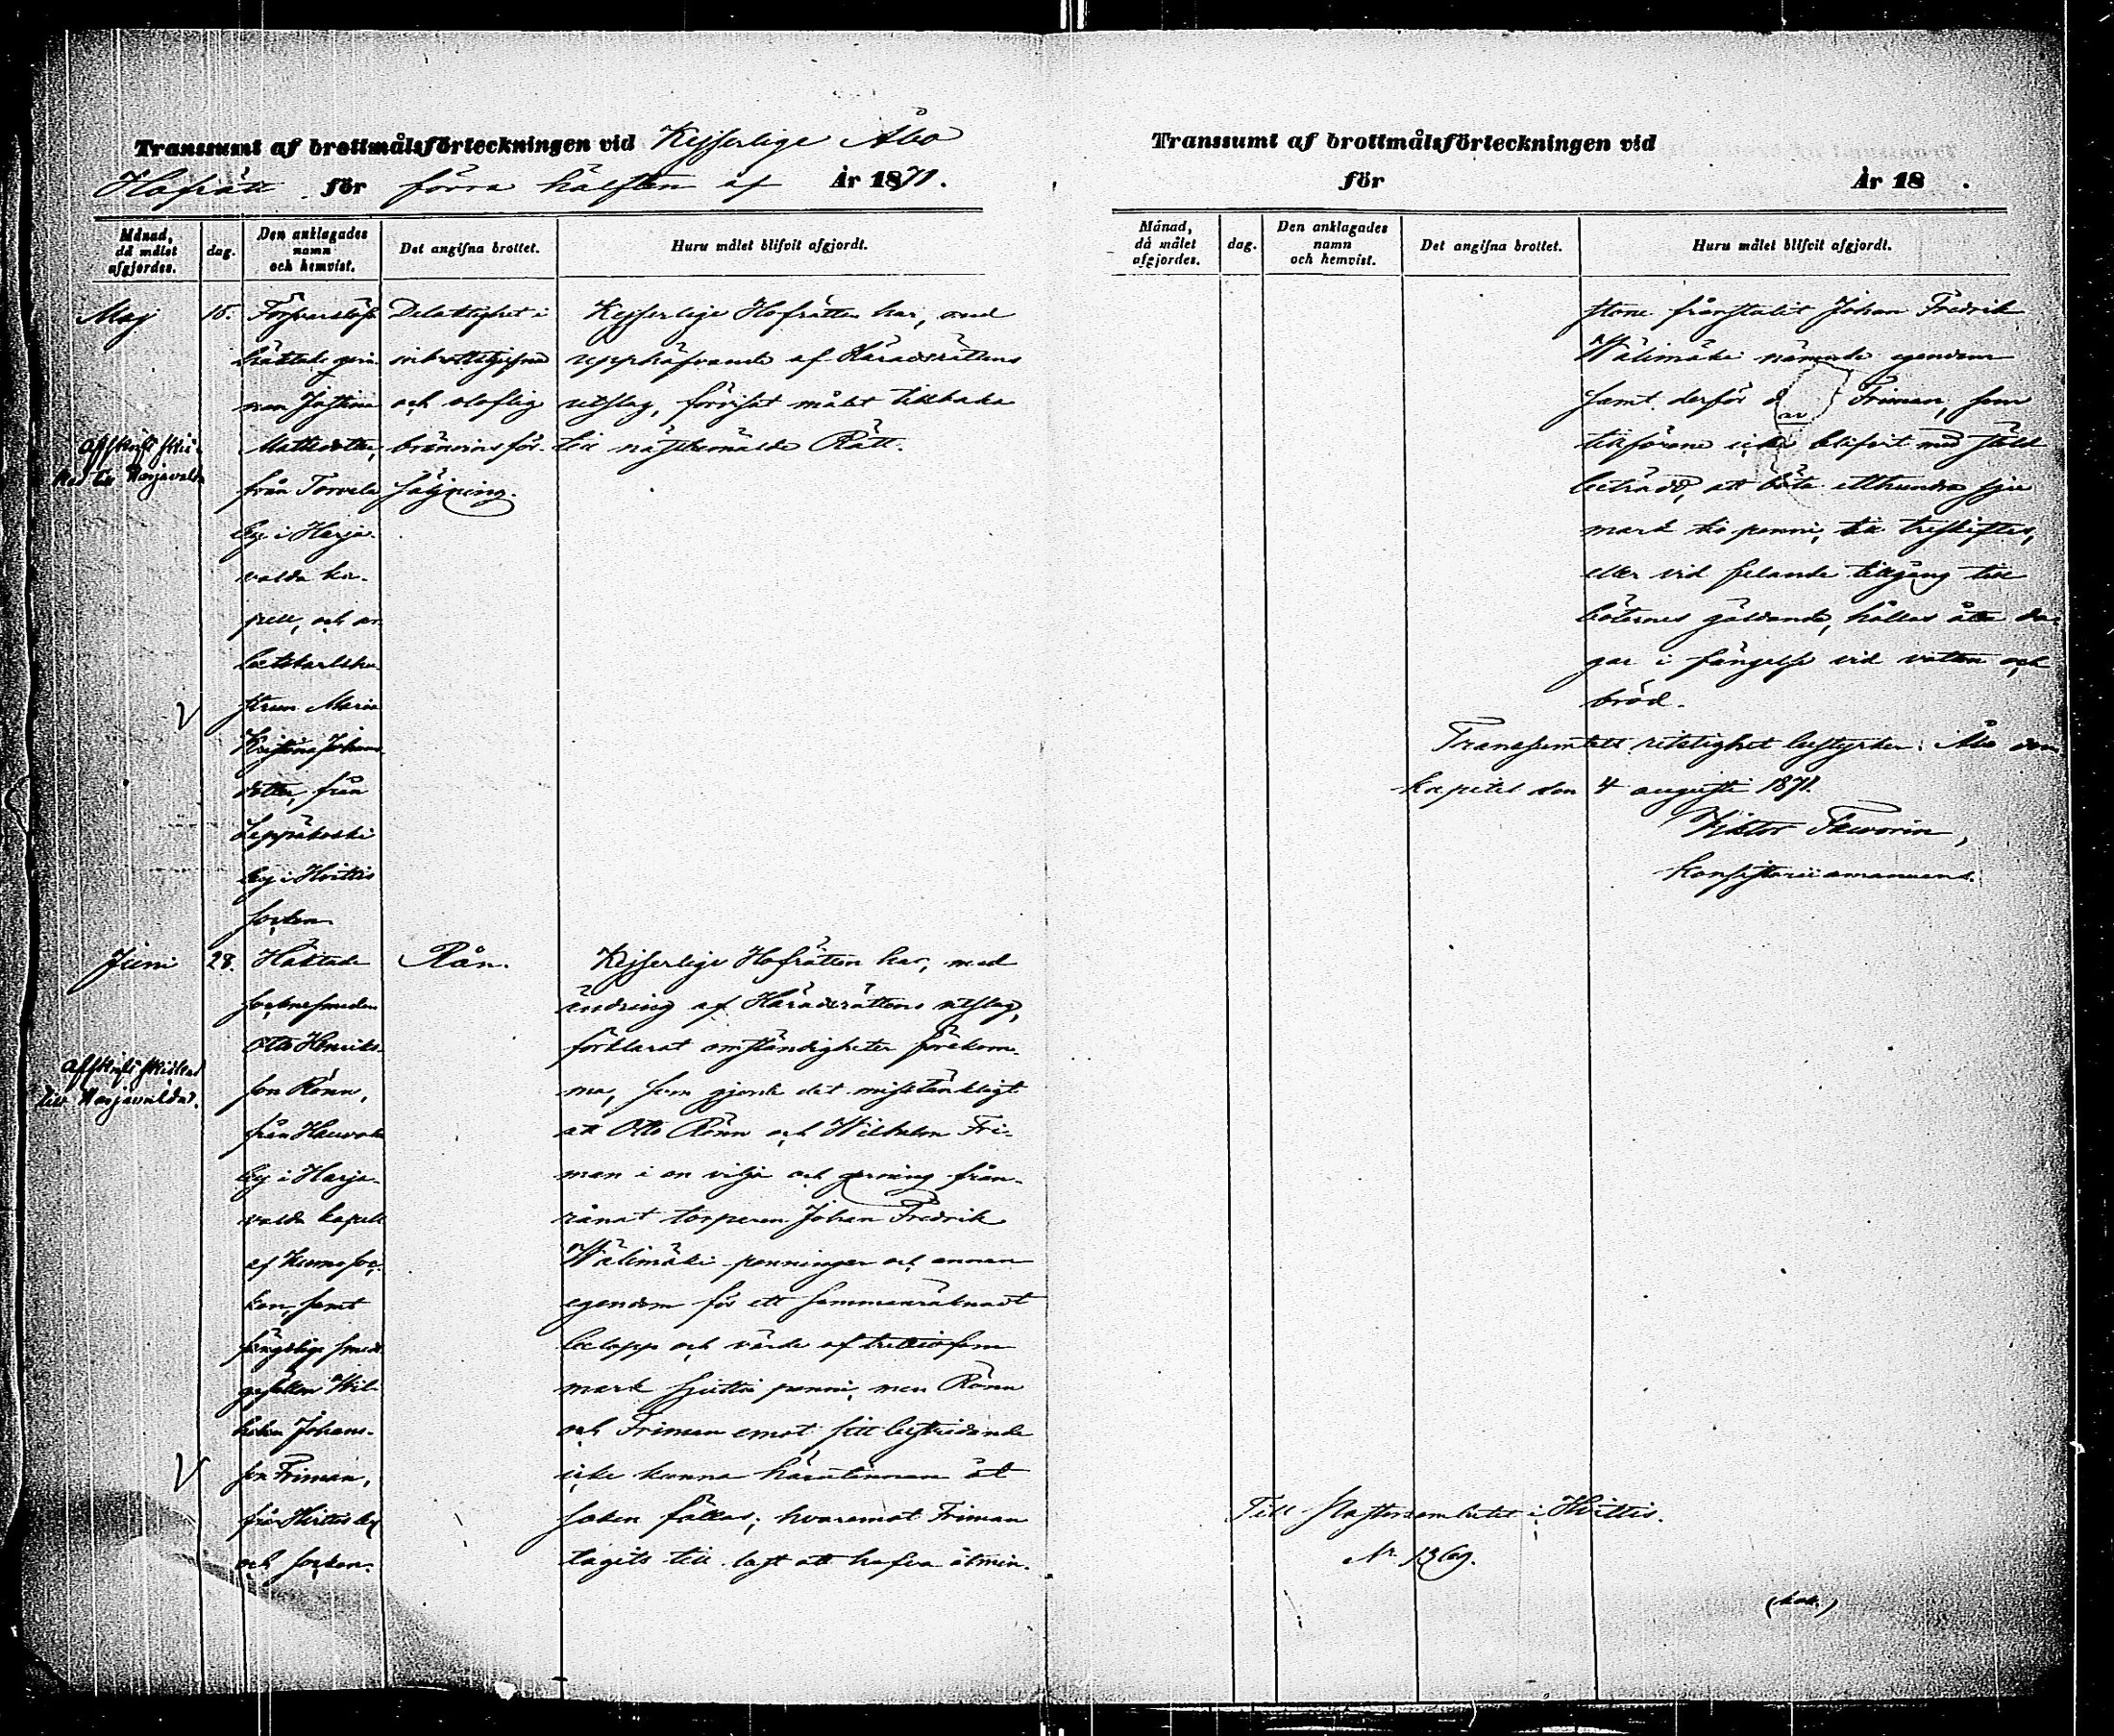 Transsumt af brottmålsförteckningen vid Kejserlige Åbo
Hofrätt för förra hälften af År 1871.
Månad, då målet afgjordes.
dag.
Den anklagades namn och hemvist.
Det angifna brottet.
Huru målet blifvit afgjordt.
Maj
15.
häktade
Justina
Mattsdotter,
från Torvela
by i Harja-
valda ka-
pell, och ar-
betskarlshu-
strun Maria
Kristina Johans-
dotter, från
Leppäkoski
by i Hvittis
socken
Delaktighet i
och olaflig
bränvinsför-
säljning.
Kejserlige Hofrätten har, med
upphäfvande af Häradsrättens
utslag, förvisat målet tillbaka
till näst bemälde Rätt.
Afskrift skic-
kad till Harjavalda
Juni
28.
Häktade
sockensmeden
Otto Henriks-
son Rönn,
från
by i Harja-
valda kapell
af Kumo soc-
ken, samt
fängslige smeds-
gesällen Wil-
helm Johans-
son Friman,
från Hvittis by
och socken.
Rån.
Kejserlige Hofrätten har, med
ändring af Häradsrättens utslag,
förklarat omständigheter förekom-
ma, som gjorde det misstänkligt
att Otto Rönn och Wilhelm Fri-
man i en vilja och gerning från-
rånat torparen Johan Fredrik
Wälimäki penningar och annan
egendom för ett sammanräknadt
belopp och värde af trettiofem
mark sjuttio penni, men Rönn
och Friman emot sitt bestridande
icke kunna härutinnan åt
saken fällas; hvaremot Friman
tagits till last att hafva åtmin-
Afskrift skickad
till Harjavalda.
Transsumt af brottmålsförteckningen vid
för År 18 .
Månad, då målet afgjordes.
dag.
Den anklagades namn och hemvist.
Det angifna brottet.
Huru målet blifvit afgjordt.
stone frånstulit Johan Fredrik
Wälimäki nämnde egendom
samt derför Friman, som
tillförene icke blifvit med stöld
beträdd, att böta etthundra sju
mark tio penni, till treskiftes,
eller vid felande tillgång till
böternes gäldande, hållas åtta da-
gar i fängelse vid vatten och
bröd.
Transsumtets riktighet bestyrker: Åbo dom-
kapitel den 4 augusti 1871.
Viktor
konsistorii amanuens.
Till Pastorsembetet i Hvittis.
No 1369.